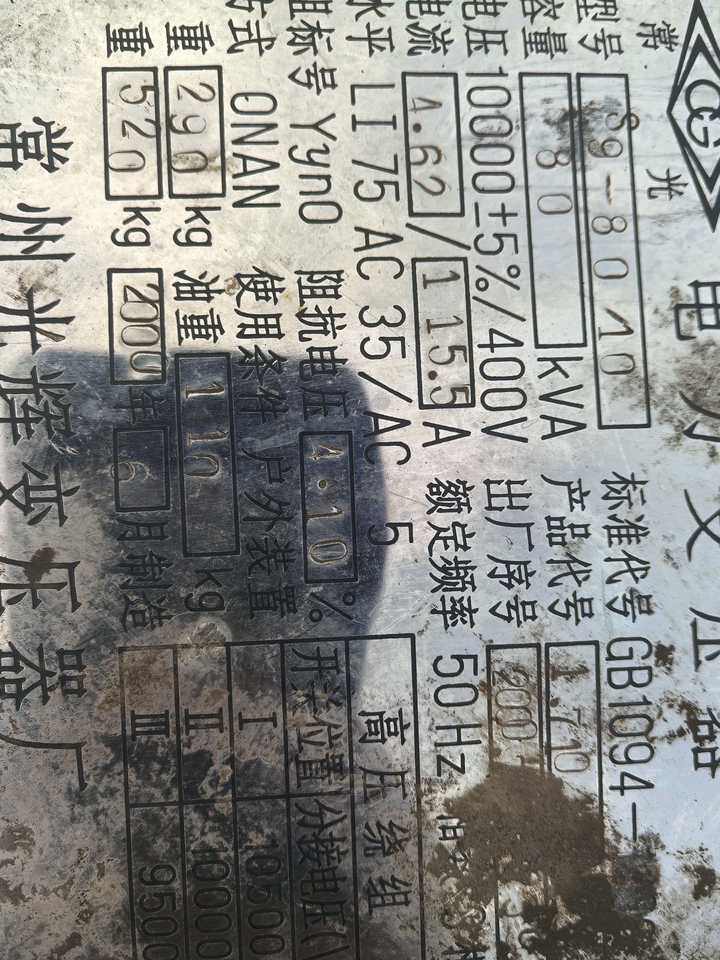 常光 电力变压器
型号 S9-80 10 标准代号 GB1094-
容量 80 kVA 产品代号
电压 10000±5%/400V 出厂序号
电流 4.62/115.5 A 额定频率 50Hz
水平 LI 75 AC 35/AC 5
组标号 Yyn0 阻抗电压 4.10 %
方式 ONAN 使用条件 户外装置
重 290 kg 油重 110 kg
重 520 kg 2000 年 6 月制造
高压绕组
开关位置 分接电压(V
I 10500
II 10000
III 9500
常州光辉变压器厂